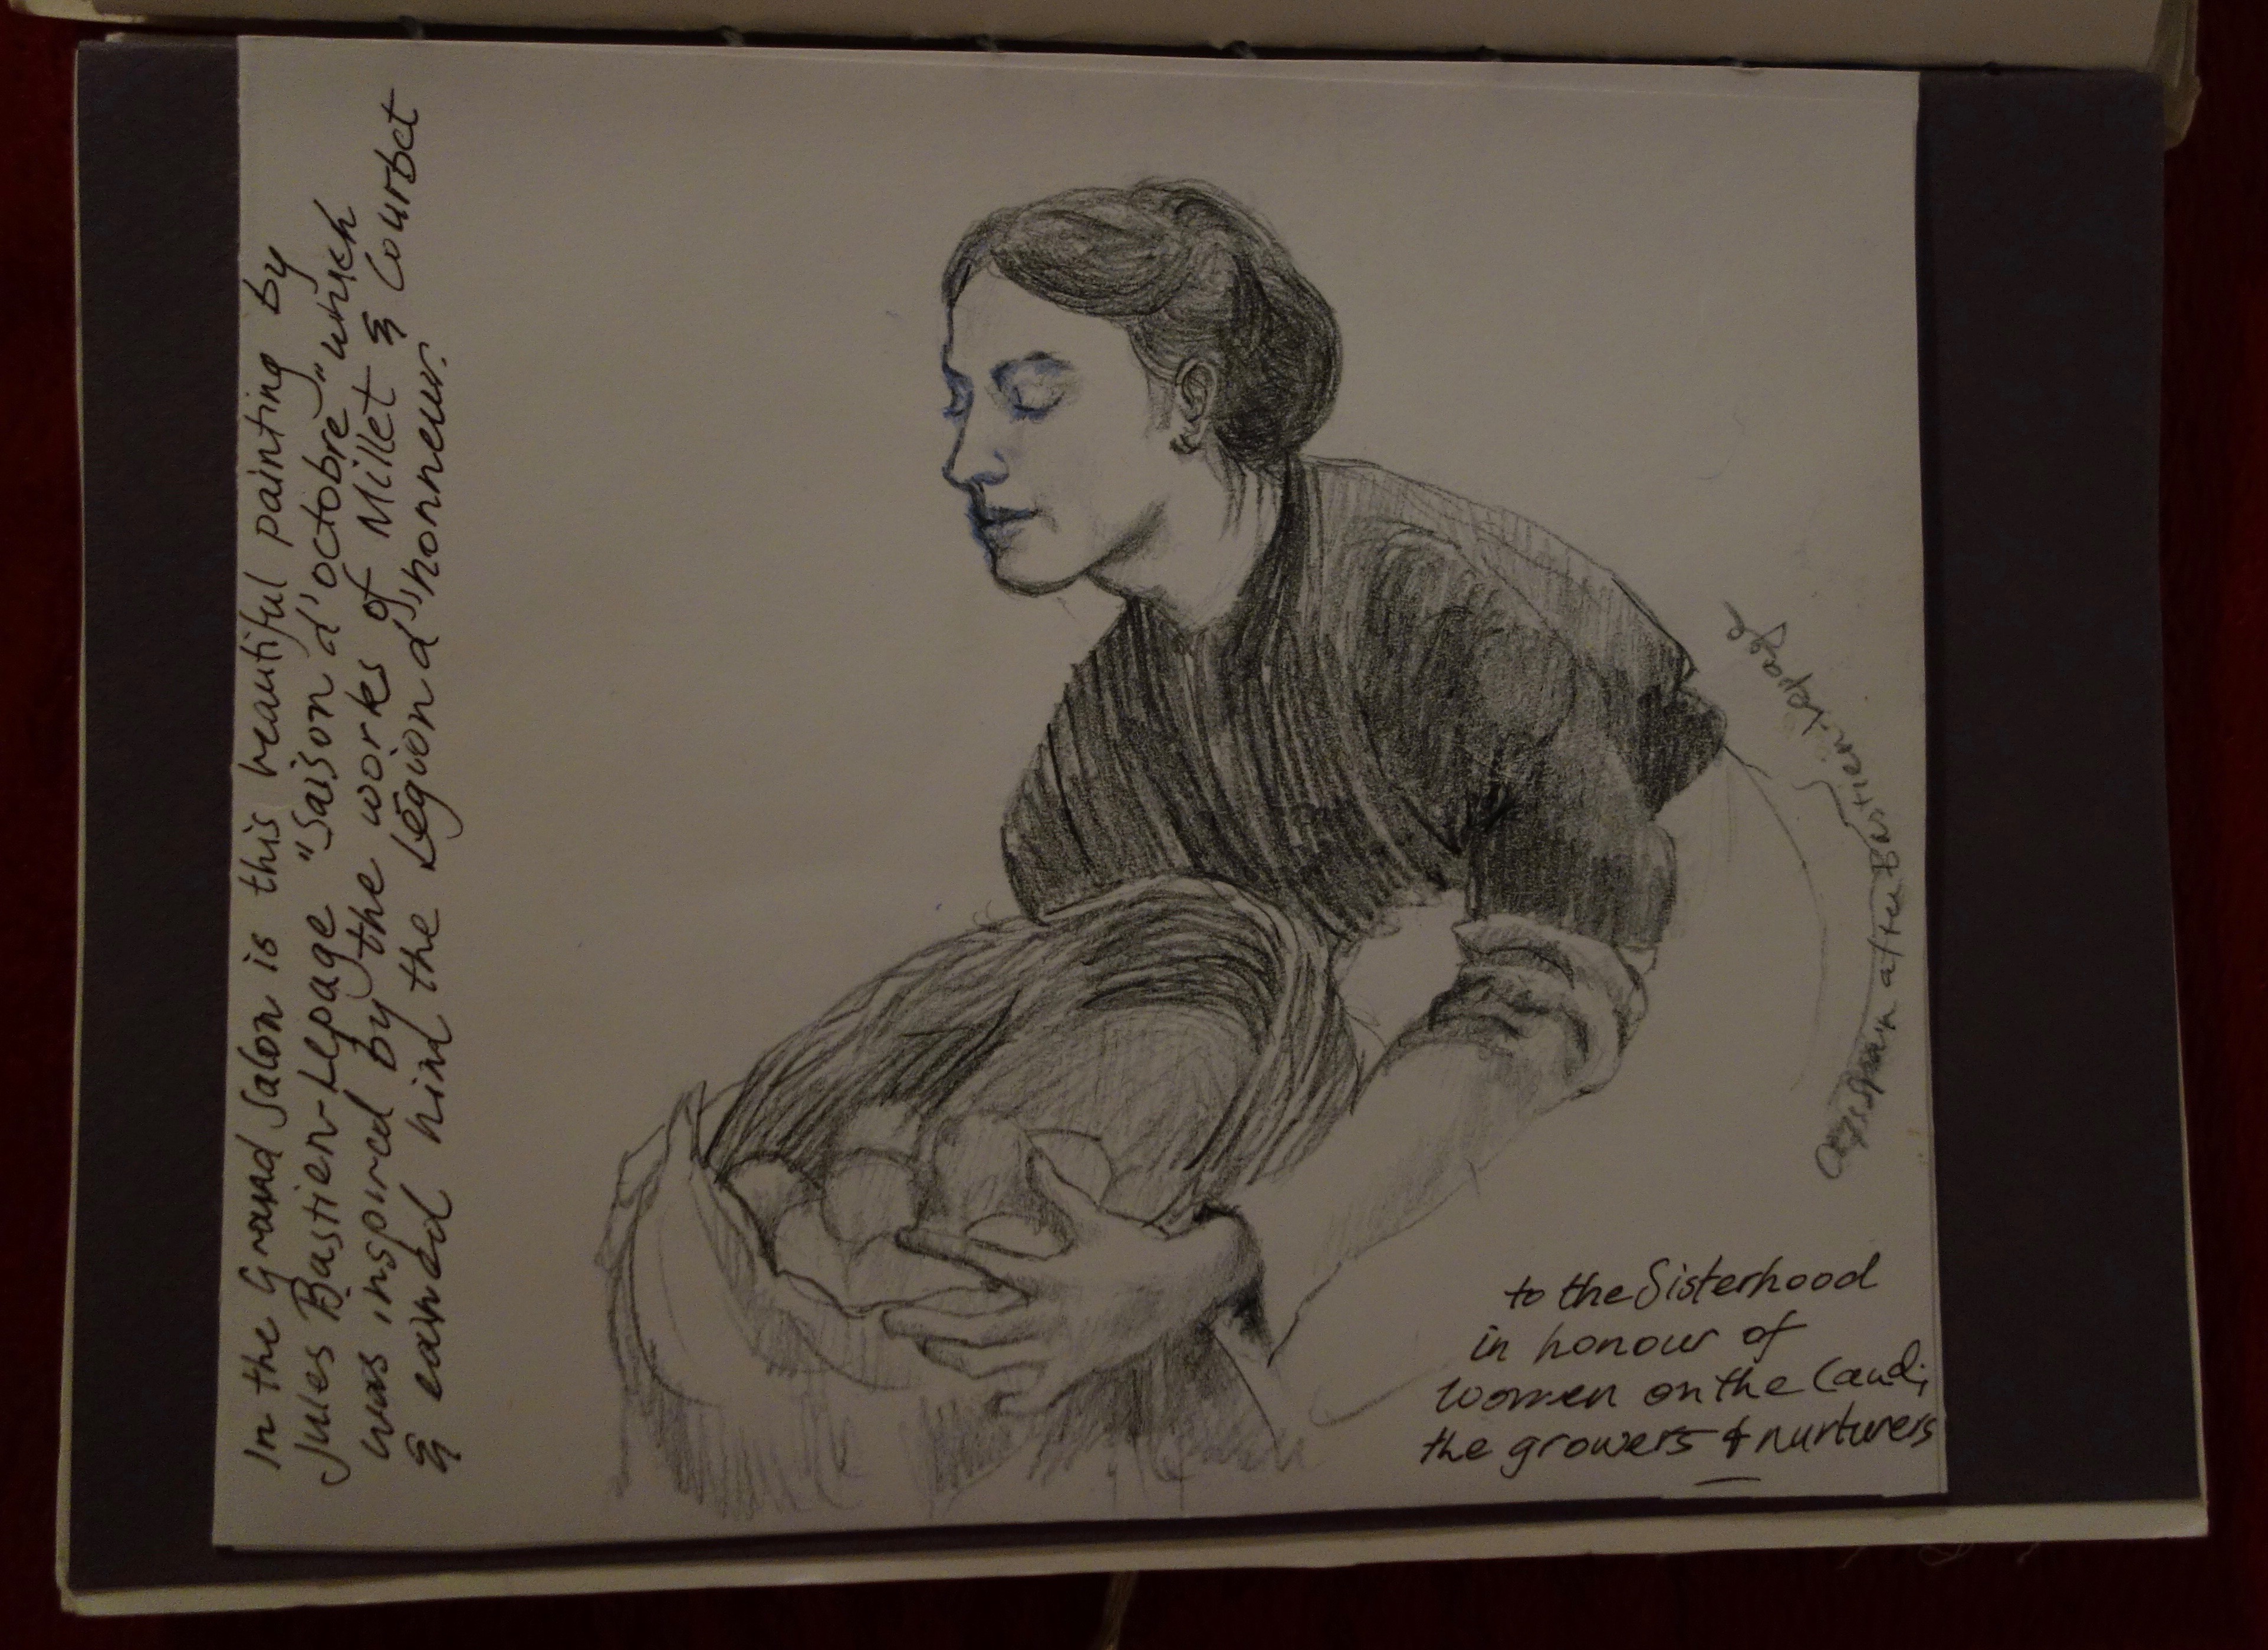 In the Grand Salon is this beautiful painting by
Jules Bastien-Lepage "Saison d'octobre" which
was inspired by the works of Millet & Courbet
& earned him the Légion d'honneur.
after Bastien-Lepage
to the Sisterhood
in honour of
women on the land,
the growers & nurturers